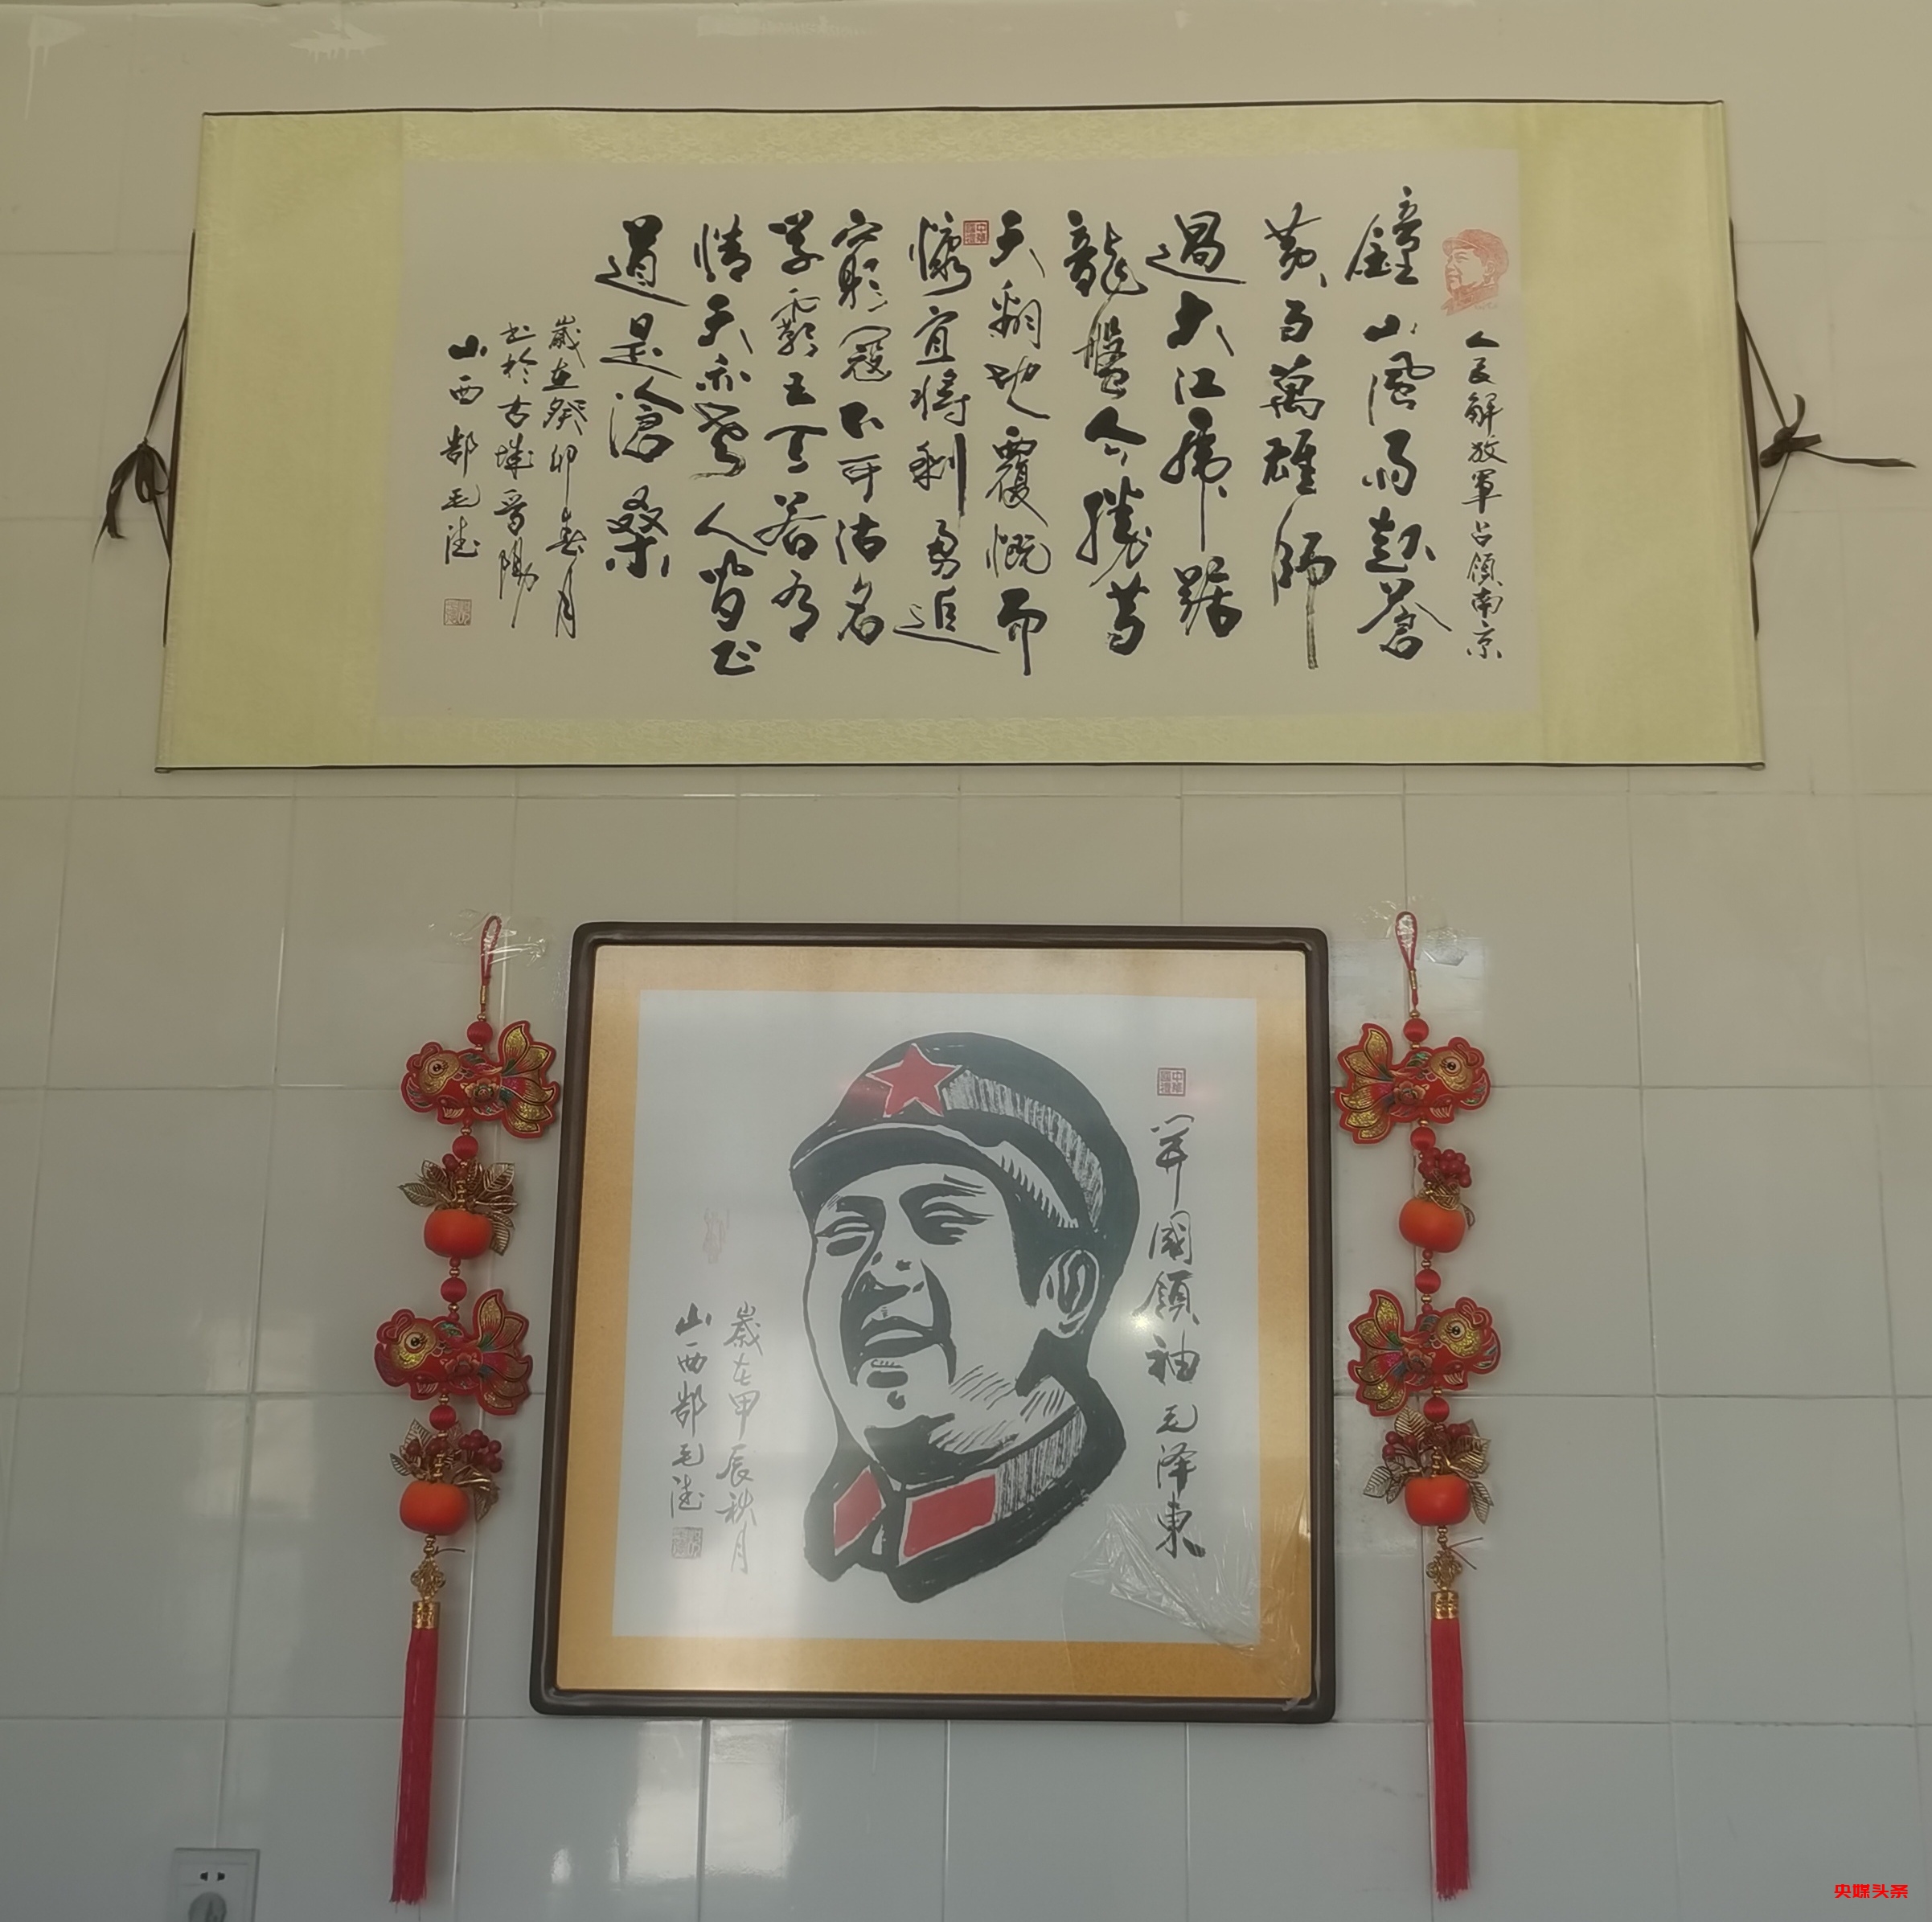 人民解放軍占領南京
鐘山風雨起蒼
黄百萬雄師
過大江虎踞
龍盤今勝昔
天翻地覆慨而
慷宜將剩勇追
窮寇不可沽名
學霸王天若有
情天亦老人間正
道是滄桑
歲在癸卯春月
书於古城晋陽
山西郜毛
開國領袖毛泽東
歲在甲辰秋月
山西郜毛
央媒头条